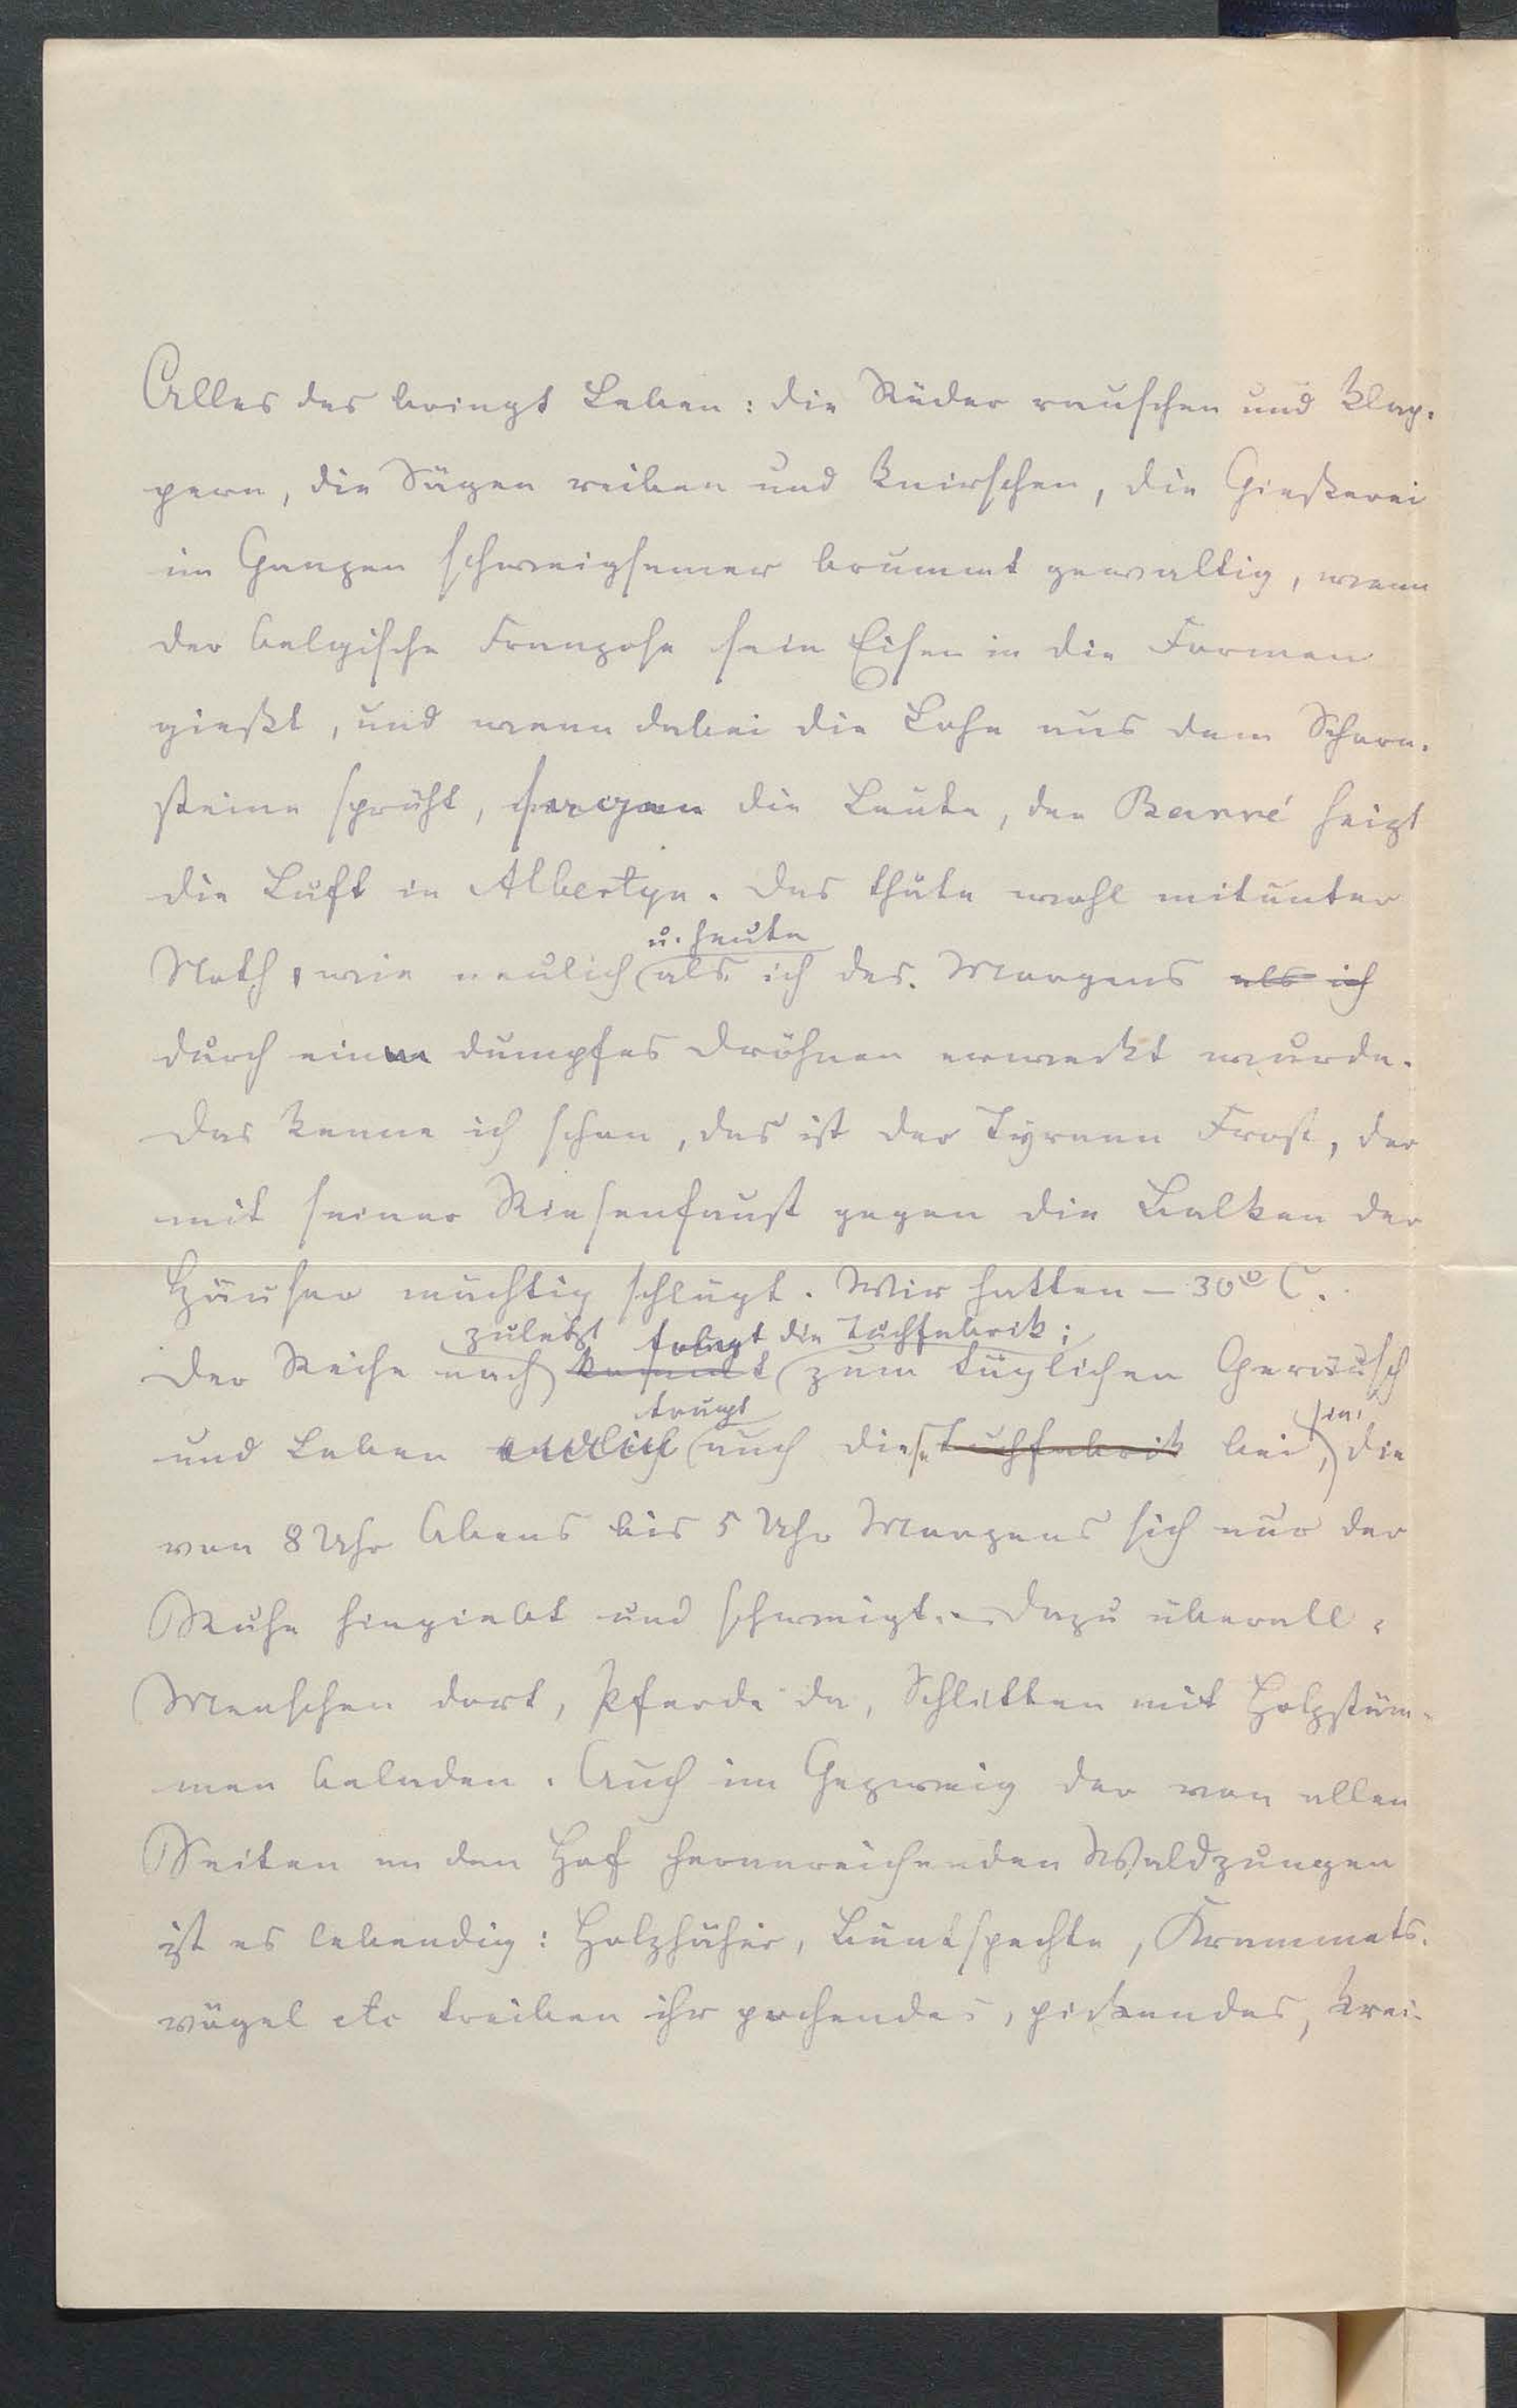 Alles das bringt Leben: die Räder rauschen und klap-
pern, die Sägen reiben und knirschen, die Gießerei
im Ganzen schweigsamer brummt gewaltig, wenn
der belgische Franzose sein Eisen in die Formen
gießt, und wenn dabei die Lohe aus dem Schorn-
steine sprüht, sagen die Leute, der Barré heizt
die Luft in Albertyn. Das thäte wohl mitunter
u. heute
Noth, wie neulich als ich des Morgens als ich
durch ein dumpfes Dröhnen erweckt wurde.
Das kenne ich schon, das ist der Tyrann Frost, der
mit seiner Riesenfaust gegen die Balken der
Häuser mächtig schlägt. Wir hatten – 30° C.
zuletzt folgt die Tuchfabrik;
Der Reihe nach kommt zum täglichen Geräusch
trägt
und Leben endlich auch diese Tuchfabrik bei, die
von 8 Uhr Abens bis 5 Uhr Morgens sich nur der
Ruhe hingiebt und schweigt. – Dazu überall
Menschen dort, Pferde da, Schlitten mit Holzstäm-
men beladen. Auch im Gezweig der von allen
Seiten an den Hof heranreichenden Waldzungen
ist es lebendig: Holzhäher, Buntspechte, Krammets-
vögel etc treiben ihr pochendes, pickendes, krei-